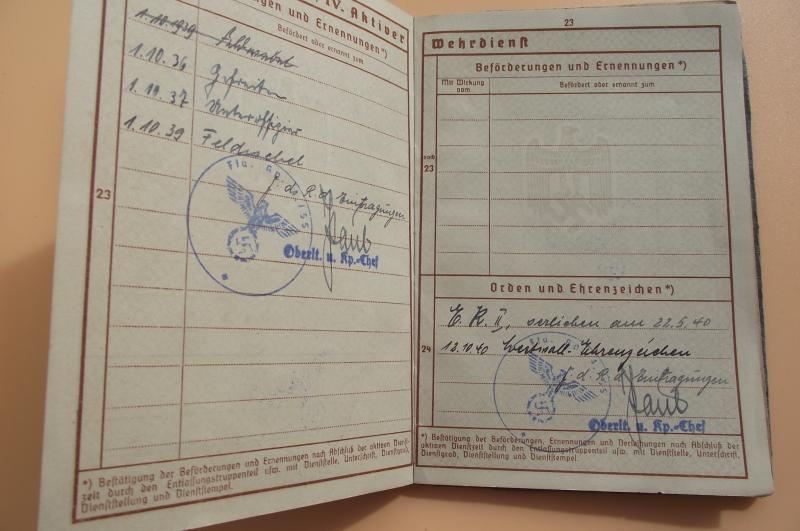 IV. Aktiver
ungen und Ernennungen*)
Befördert oder ernannt zum
1.10.1939 Feldwebel
1.10.36 Gefreiten
1.10.37 Unteroffizier
1.10.39 Feldwebel
23
f. d. R. d. Eintragungen
Oberlt. u. Kp.-Chef
*) Bestätigung der Beförderungen und Ernennungen nach Abschluß der aktiven Dienst-
zeit durch den Entlassungstruppenteil usw. mit Dienststelle, Unterschrift, Dienstgrad,
Dienststellung und Dienststempel.
23
Wehrdienst
Beförderungen und Ernennungen*)
Mit Wirkung
vom
Befördert oder ernannt zum
noch
23
Orden und Ehrenzeichen*)
E. K. II, verliehen am 22.5.40
24
12.10.40 Westwall-Ehrenzeichen
f. d. R. d. Eintragungen
Oberlt. u. Kp.-Chef
*) Bestätigung der Beförderungen, Ernennungen und Verleihungen nach Abschluß der
aktiven Dienstzeit durch den Entlassungstruppenteil usw. mit Dienststelle, Unterschrift,
Dienstgrad, Dienststellung und Dienststempel.